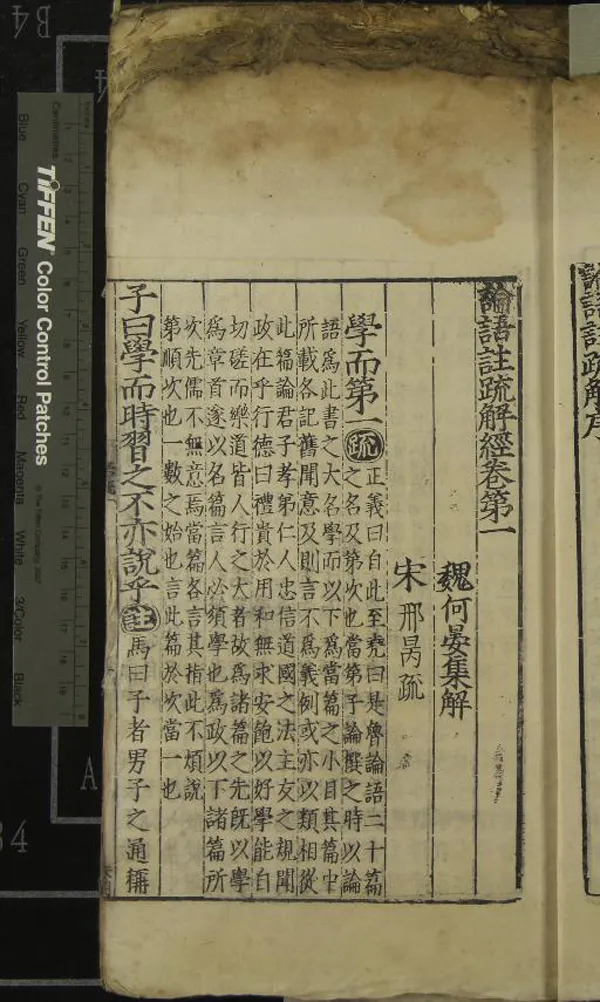 論語註疏解經卷第一
魏何晏集解
宋邢昺疏
學而第一
疏
正義曰自此至堯曰是魯論語二十篇
之名及第次也當弟子論撰之時以論
語爲此書之大名學而以下爲當篇之小目其篇中
所載各記舊聞意及則言不爲義例或亦以類相從
此篇論君子孝弟仁人忠信道國之法主友之規聞
政在乎行德曰禮貴於用和無求安飽以好學能自
切磋而樂道皆人行之大者故爲諸篇之先旣以學
爲章首遂以名篇言人必須學也爲政以下諸篇所
次先儒不無意焉當篇各言其指此不煩說
第順次也一數之始也言此篇於次當一也
子曰學而時習之不亦說乎
註
馬曰子者男子之通稱
論語註疏解序
TIFFEN Color Control Patches
© The Tiffen Company, 2007
Centimetres
Inches
Blue
Cyan
Green
Yellow
Red
Magenta
White
3/Color
Black
B4
A